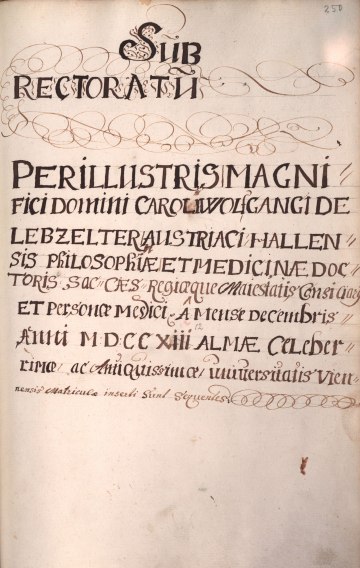 250
SUB
RECTORATŨ
PERILLUSTRIS, MAGNI⸗
FICI DOMINI CAROLI WOLFGANGI DE
LEBZELTER, AUSTRIACI HALLEN⸗
SIS PHILOSOPHIÆ ET MEDICINÆ DOC⸗
TORIS SAC: CÆS: Regiæque Maiestatis Consiliarij
ET Personæ Medici, A Mense Decembris
Anni MDCCXIII ALMÆ Celeber⸗
rimæ, ac Antiquissimæ, universitatis Vien⸗
nensis Matriculæ inserti Sunt Sequentes.